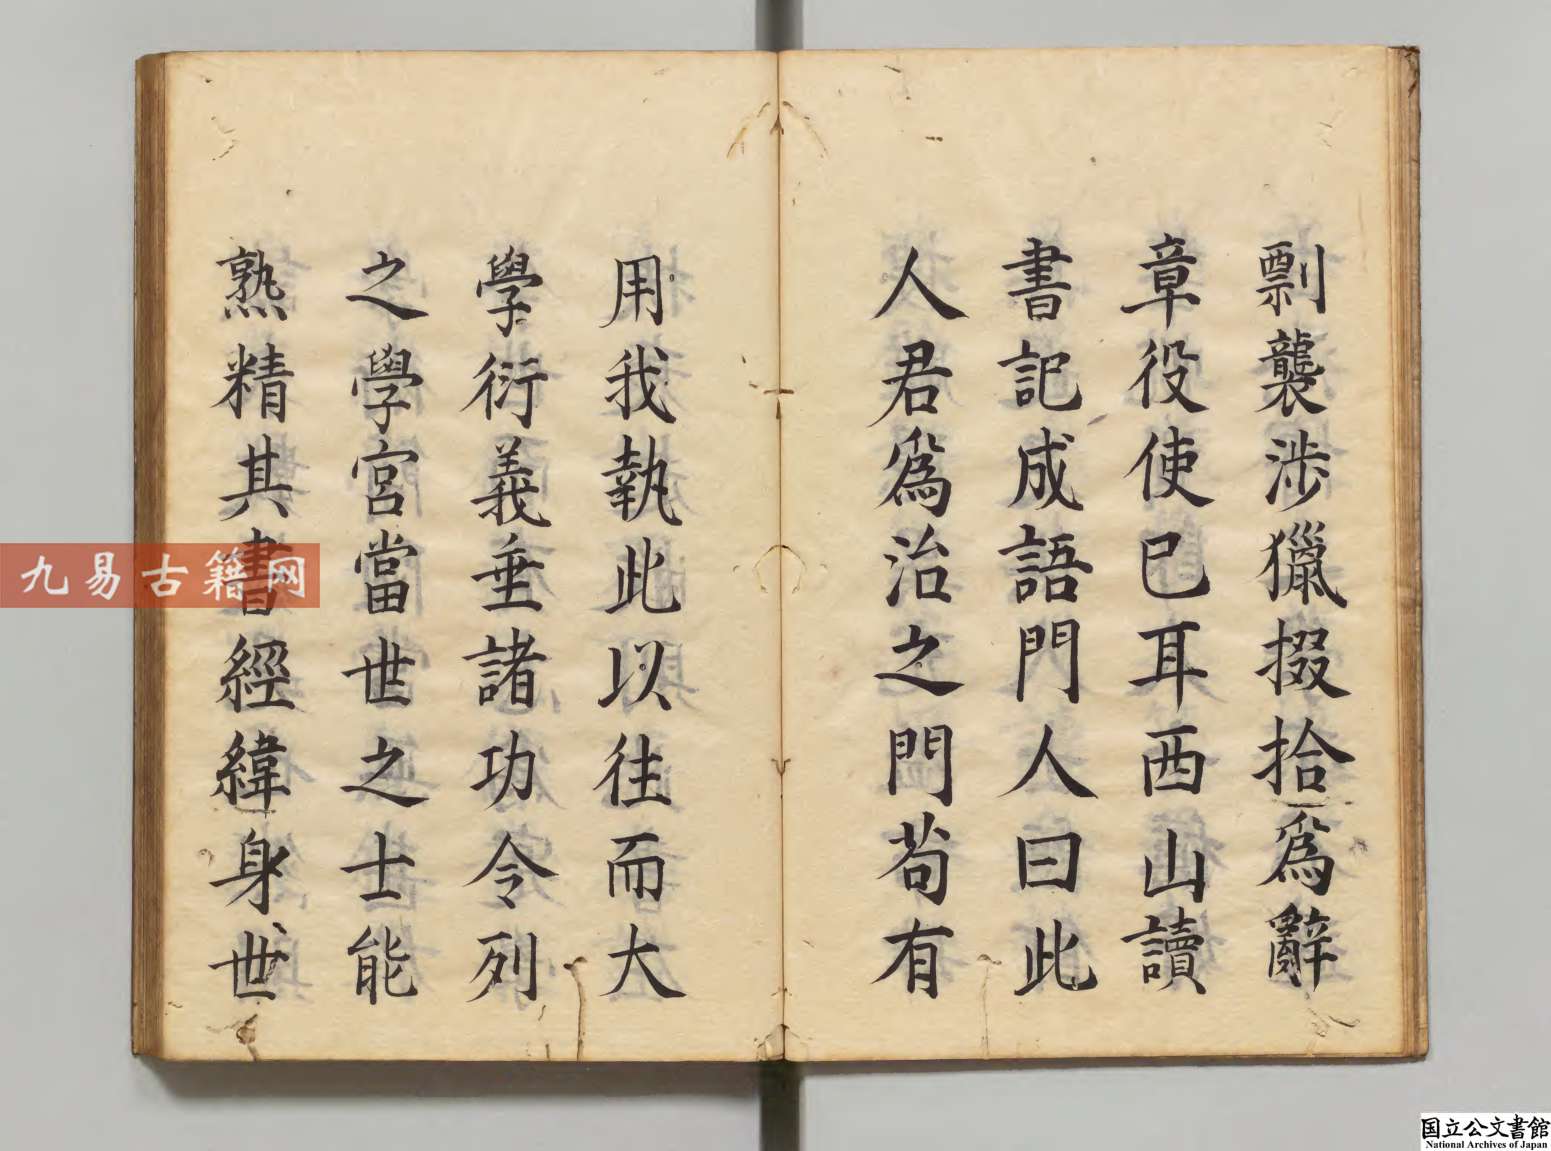 剽襲渉獵掇拾爲辭
章役使已耳西山讀
書記成語門人曰此
人君爲治之門茍有
用我執此以往而大
學衍義垂諸功令列
之學宮當世之士能
熟精其書經緯身世
九易古籍网
国立公文書館
National Archives of Japan